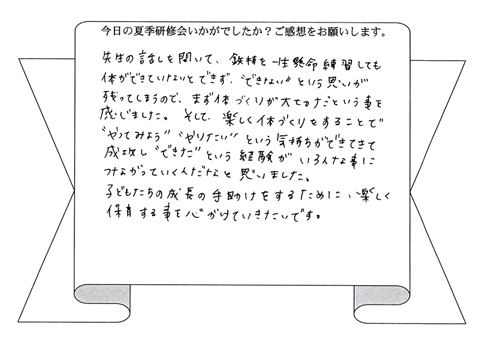 今日の夏季研修会いかがでしたか？ご感想をお願いします。
先生の話しを聞いて、鉄棒を一生懸命練習しても
体ができていないとできず、"できない"という思いが
残ってしまうので、まず体づくりが大切だという事を
感じました。そして、楽しく体づくりをすることで
"やってみよう""やりたい"という気持ちがでてきて
成功し"できた"という経験がいろんな事に
つながっていくんだなと思いました。
子どもたちの成長の手助けをするために、楽しく
保育する事を心がけていきたいです。